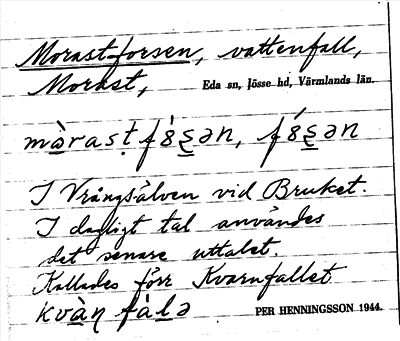 Morast-forsen, vattenfall,
Morast, Eda sn, Jösse hd, Värmlands län.
mòrasṭ fʹ8ʂən, fʹ8ʂən
I Vrångsälven vid Bruket.
I dagligt tal användes
det senare uttalet.
Kallades förr Kvarnfallet
kvàɳ fàlə PER HENNINGSSON 1944.